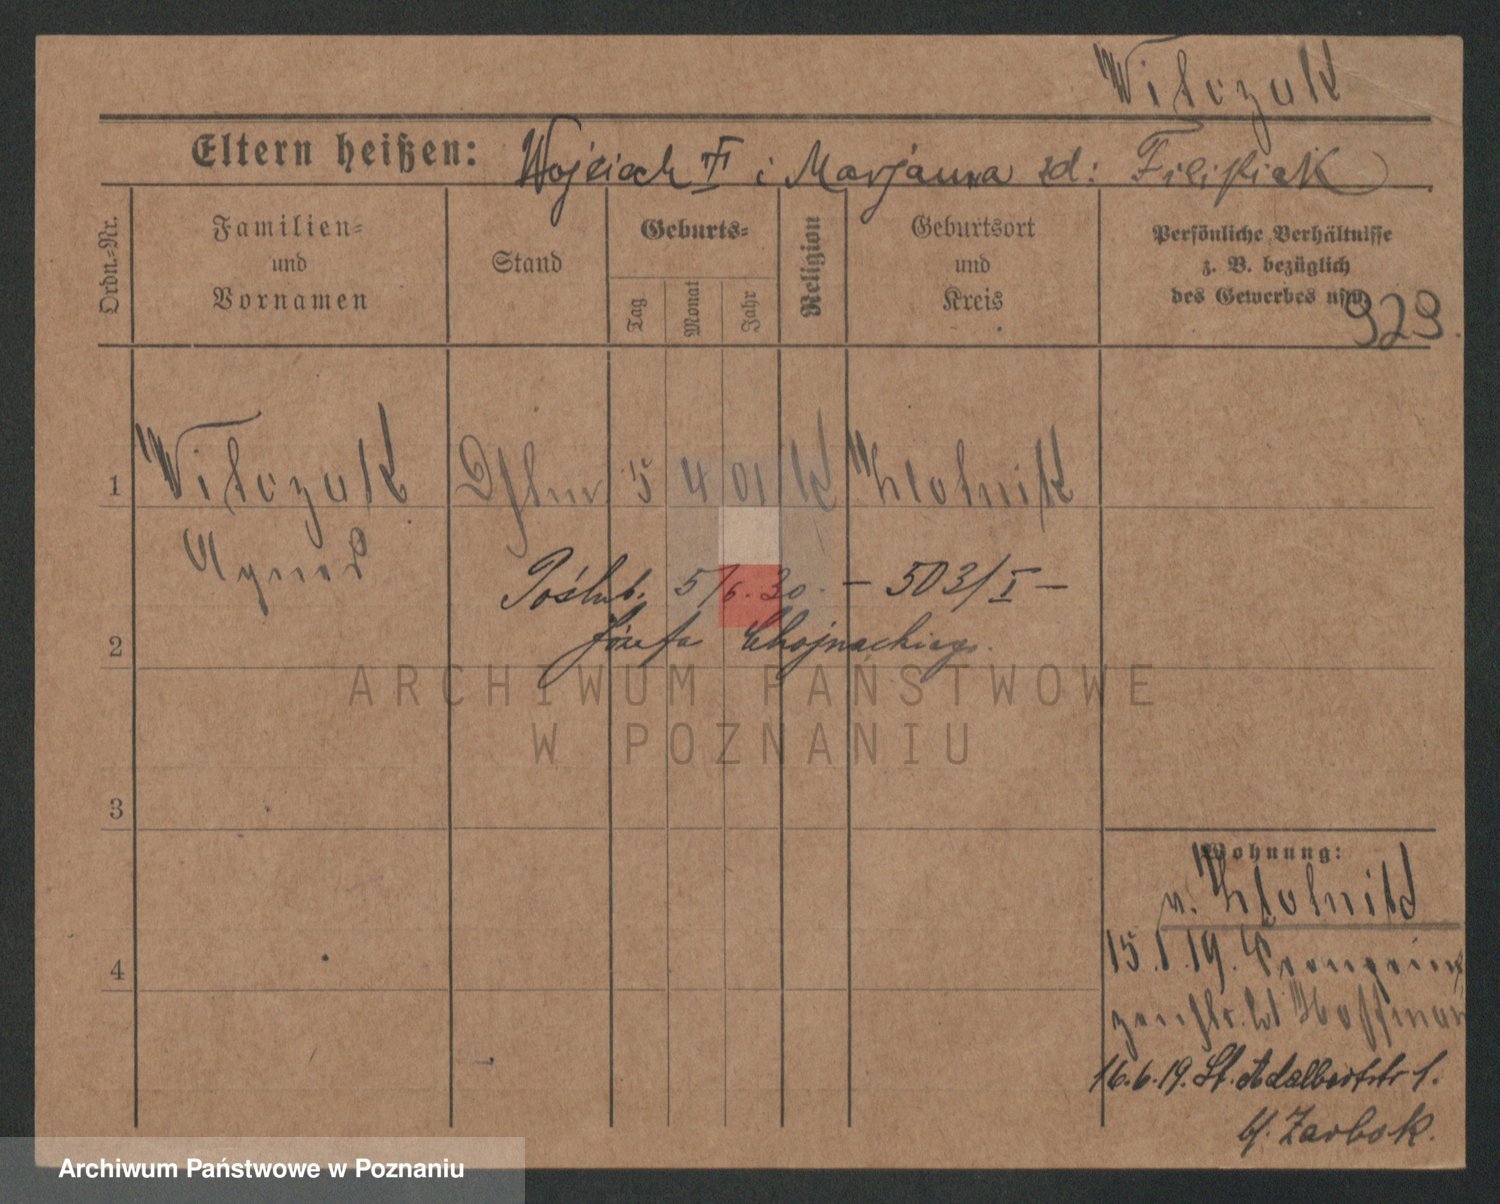 Wilczak
Eltern heißen: Wojciech II i Marjanna zd: Filipiak
Ordn.-Nr.
Familien- und Vornamen
Stand
Geburts-
Tag
Monat
Jahr
Religion
Geburtsort und Kreis
Persönliche Verhältnisse
z. B. bezüglich
des Gewerbes usw.
929.
1 Wilczak 5 4 01 K
Agnes
Poślub. 5/6.30. – 503/I –
2 Józefa Chojnackiego.
ARCHIWUM PAŃSTWOWE
W POZNANIU
3
Wohnung:
v.
15.1.19.
4
bl Hoffmann
16.6.19. St. Adalbertstr 1.
b/. Zarbok.
Archiwum Państwowe w Poznaniu